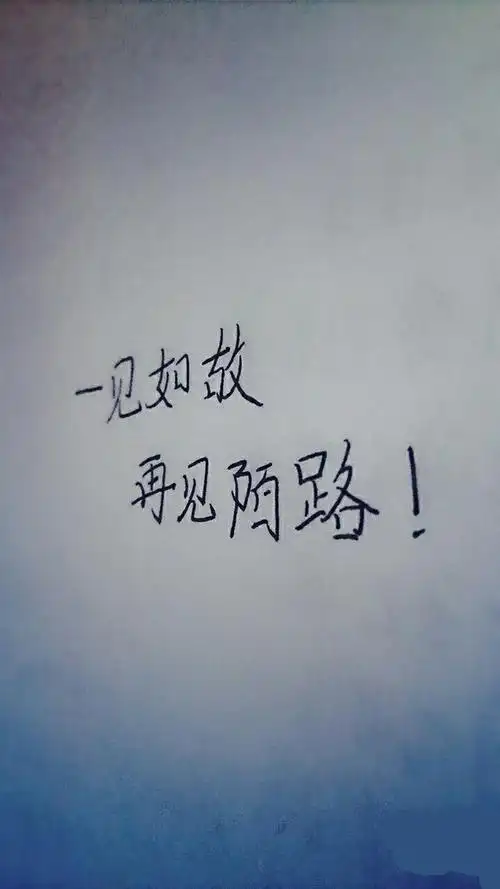 一见如故
再见陌路！